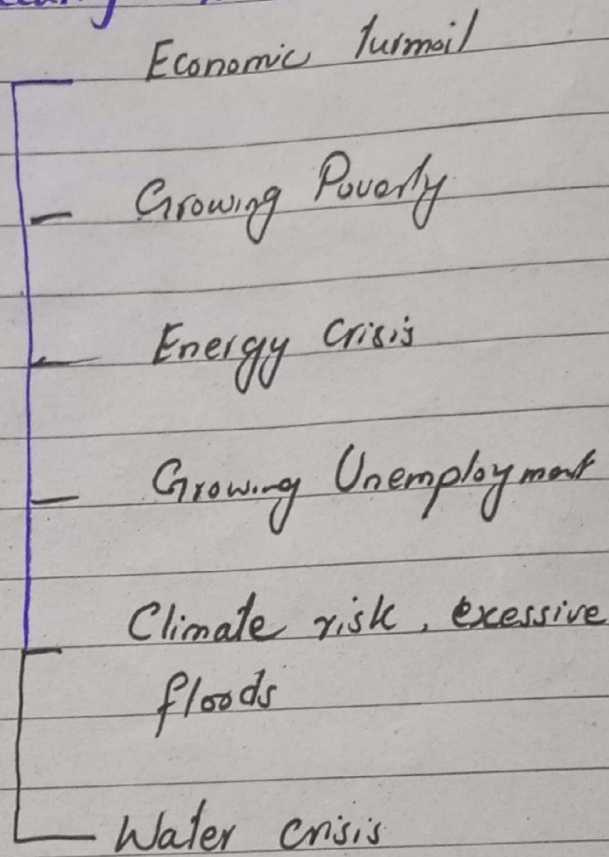 Economic turmoil
Growing Poverty
Energy Crisis
Growing Unemployment
Climate risk, exessive
floods
Water crisis